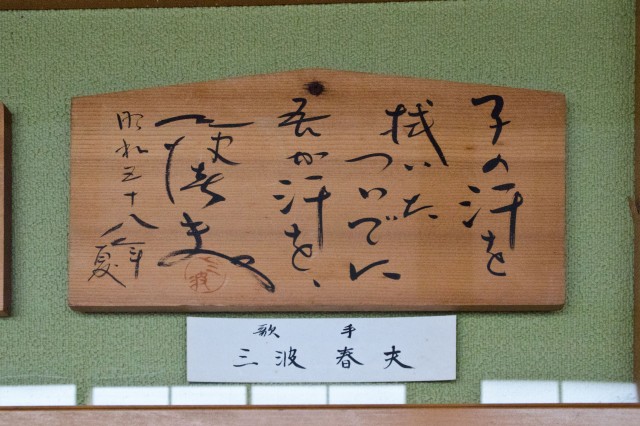 子の汗を
拭いた
ついでに
吾が汗を、
三波春夫
昭和五十八年夏
歌手
三波春夫